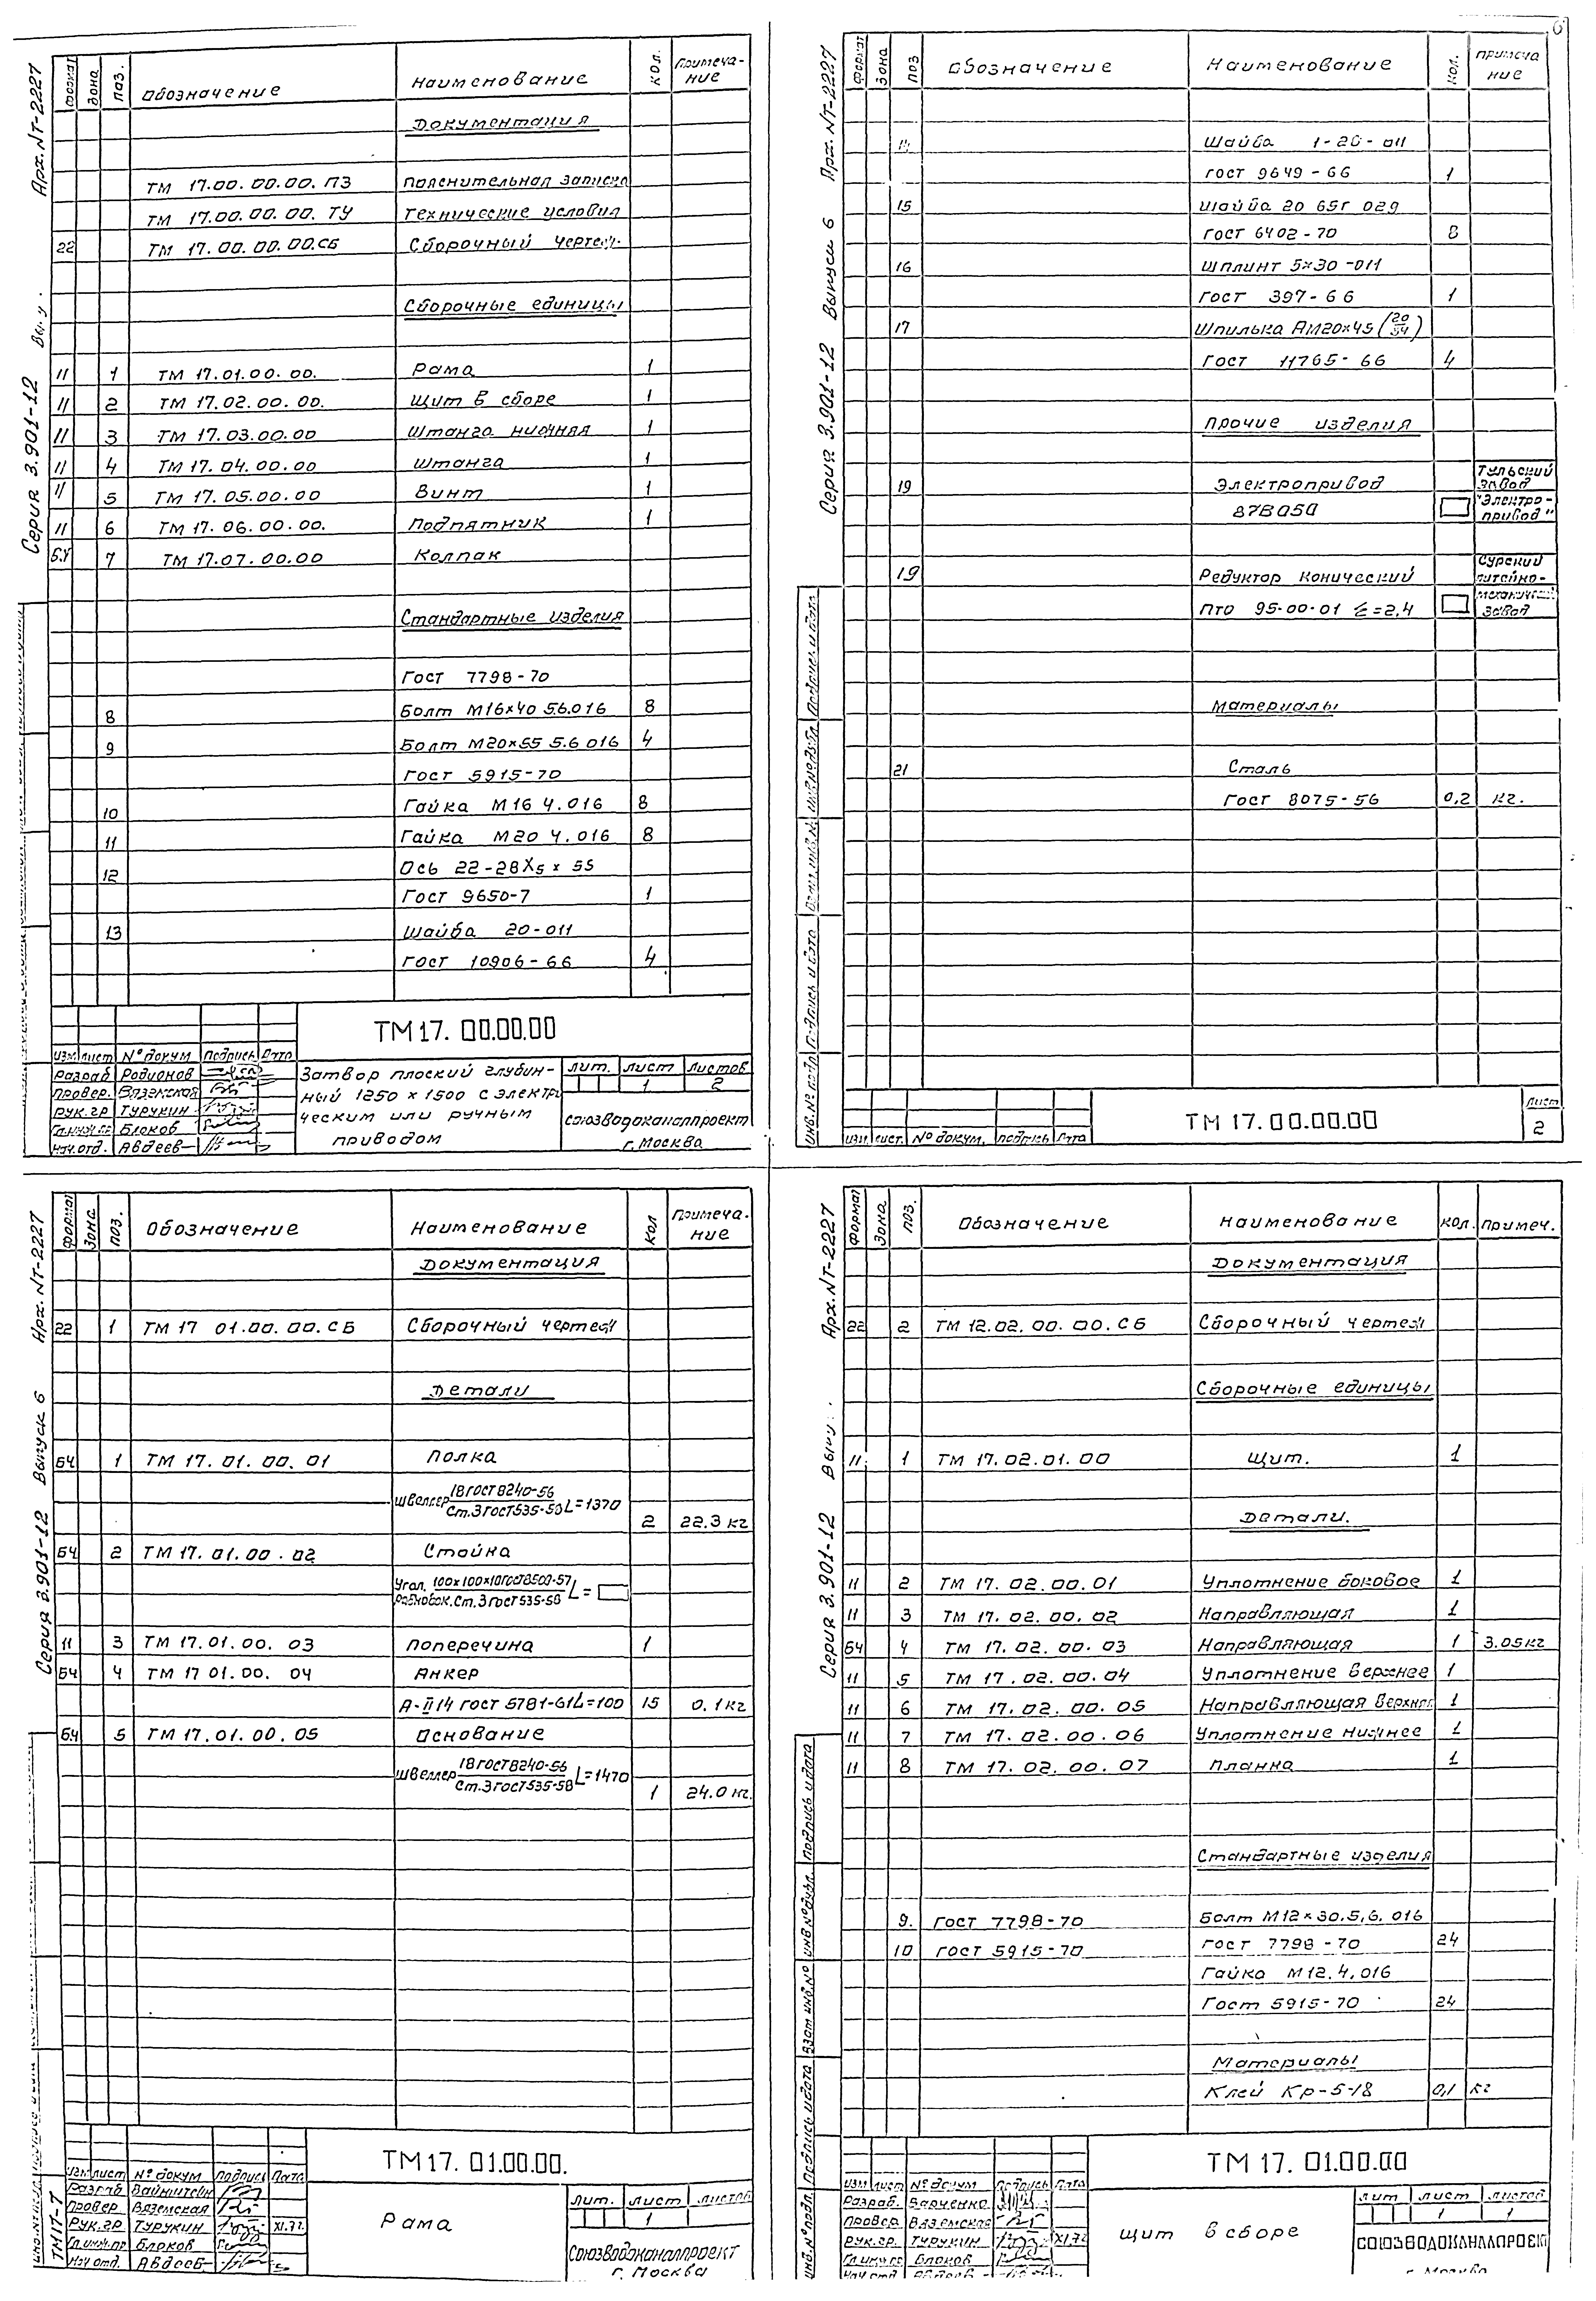 Арх. NT-2227
Серия 3.901-12
формат Зона поз. Обозначение Наименование кол. Примеча-
ние
Документация
ТМ 17.00.00.00.ПЗ Пояснительная записка
ТМ 17.00.00.00.ТУ Технические условия
22 ТМ 17.00.00.00.СБ Сборочный чертеж
Сборочные единицы
11 1 ТМ 17.01.00.00. Рама 1
11 2 ТМ 17.02.00.00. Щит в сборе 1
11 3 ТМ 17.03.00.00 Штанга нижняя 1
11 4 ТМ 17.04.00.00 Штанга 1
11 5 ТМ 17.05.00.00 Винт 1
11 6 ТМ 17.06.00.00. Подпятник 1
Б.Ч 7 ТМ 17.07.00.00 Колпак
Стандартные изделия
Гост 7798-70
8 Болт М16×40 5.6.016 8
9 Болт М20×55 5.6 016 4
Гост 5915-70
10 Гайка М16 4.016 8
11 Гайка М20 4.016 8
12 Ось 22-28Х5 × 55
Гост 9650-7 1
13 Шайба 20-011
Гост 10906-66 4
ТМ17. 00.00.00
Изм лист N° докум Подпись Дата
Разраб Родионов
Провер. Вяземская
Рук.гр Турукин
Гл.инж.пр Блоков
Нач.отд. Авдеев
Затвор плоский глубин-
ный 1250 × 1500 с электри
ческим или ручным
приводом
лит. лист листов
1 2
Союзводоканалпроект
г. Москва
Арх. NT-2227
Серия 3.901-12 Выпуск 6
6
формат Зона поз Обозначение Наименование Кол. Примеча
ние
Шайба 1-20-011
Гост 9649-66 1
15 Шайба 20 65Г 029
Гост 6402-70 8
16 Шплинт 5×30-011
Гост 397-66 1
17 Шпилька АМ20×45 (20/54)
Гост 11765-66 4
Прочие изделия
19 Электропривод Тульский завод
87В050 "Электро-
привод"
19 Редуктор конический Сурский литейно-
ПТО 95-00-01 i=2,4 механический завод
Материалы
21 Сталь
Гост 8075-56 0,2 кг.
Подпись и дата
инв. N° подл
изм лист. N° докум. подпись Дата
ТМ 17.00.00.00
лист
2
Арх. NT-2227
Серия 3.901-12 Выпуск 6
формат Зона поз. Обозначение Наименование Кол Примеча.
ние
Документация
22 1 ТМ 17 01.00.00.СБ Сборочный чертеж
Детали
БЧ 1 ТМ 17.01.00.01 Полка
Швеллер 18 ГОСТ 8240-56
Ст.3 ГОСТ 535-58 L=1370
2 22.3 кг
БЧ 2 ТМ 17.01.00.02 Стойка
Угол. 100×100×10 ГОСТ 8509-57
равнобок. Ст.3 ГОСТ 535-58 L=
11 3 ТМ 17.01.00.03 Поперечина 1
БЧ 4 ТМ 17 01.00.04 Анкер
А-II 14 ГОСТ 5781-61 L=100 15 0.1 кг
БЧ 5 ТМ 17.01.00.05 Основание
Швеллер 18 ГОСТ 8240-56
Ст.3 ГОСТ 535-58 L=1470
1 24.0 кг.
ТМ17-7
ТМ17. 01.00.00.
Изм лист N° докум Подпись Дата
Разраб Вайнштейн
Провер Вяземская
Рук.гр Турукин XI.72
Гл.инж.пр Блоков
Нач отд. Авдеев
Рама
лит. лист листов
1
Союзводоканалпроект
г. Москва
Арх. NT-2227
Серия 3.901-12
формат Зона поз. Обозначение Наименование кол. примеч.
Документация
22 2 ТМ 12.02.00.00.СБ Сборочный чертеж
Сборочные единицы
11 1 ТМ 17.02.01.00 Щит. 1
Детали.
11 2 ТМ 17.02.00.01 Уплотнение боковое 1
11 3 ТМ 17.02.00.02 Направляющая 1
БЧ 4 ТМ 17.02.00.03 Направляющая 1 3.05 кг
11 5 ТМ 17.02.00.04 Уплотнение верхнее 1
11 6 ТМ 17.02.00.05 Направляющая верхняя 1
11 7 ТМ 17.02.00.06 Уплотнение нижнее 1
11 8 ТМ 17.02.00.07 Планка 1
Стандартные изделия
9. Гост 7798-70 Болт М12×30.5,6.016
10 Гост 5915-70 Гост 7798-70 24
Гайка М12.4.016
Гост 5915-70 24
Материалы
Клей Кр-5-18 0,1 кг
Подпись и дата
инв. N° дубл.
Взам инв. N°
Подпись и дата
инв. N° подл.
ТМ 17. 01.00.00
изм лист N° докум Подпись Дата
Разраб.
Провер Вяземская
Рук.гр Турукин XI.72
Гл.инж.пр Блоков
Нач отд Авдеев
Щит в сборе
лит лист листов
1 1
СОЮЗВОДОКАНАЛПРОЕКТ
г. Москва